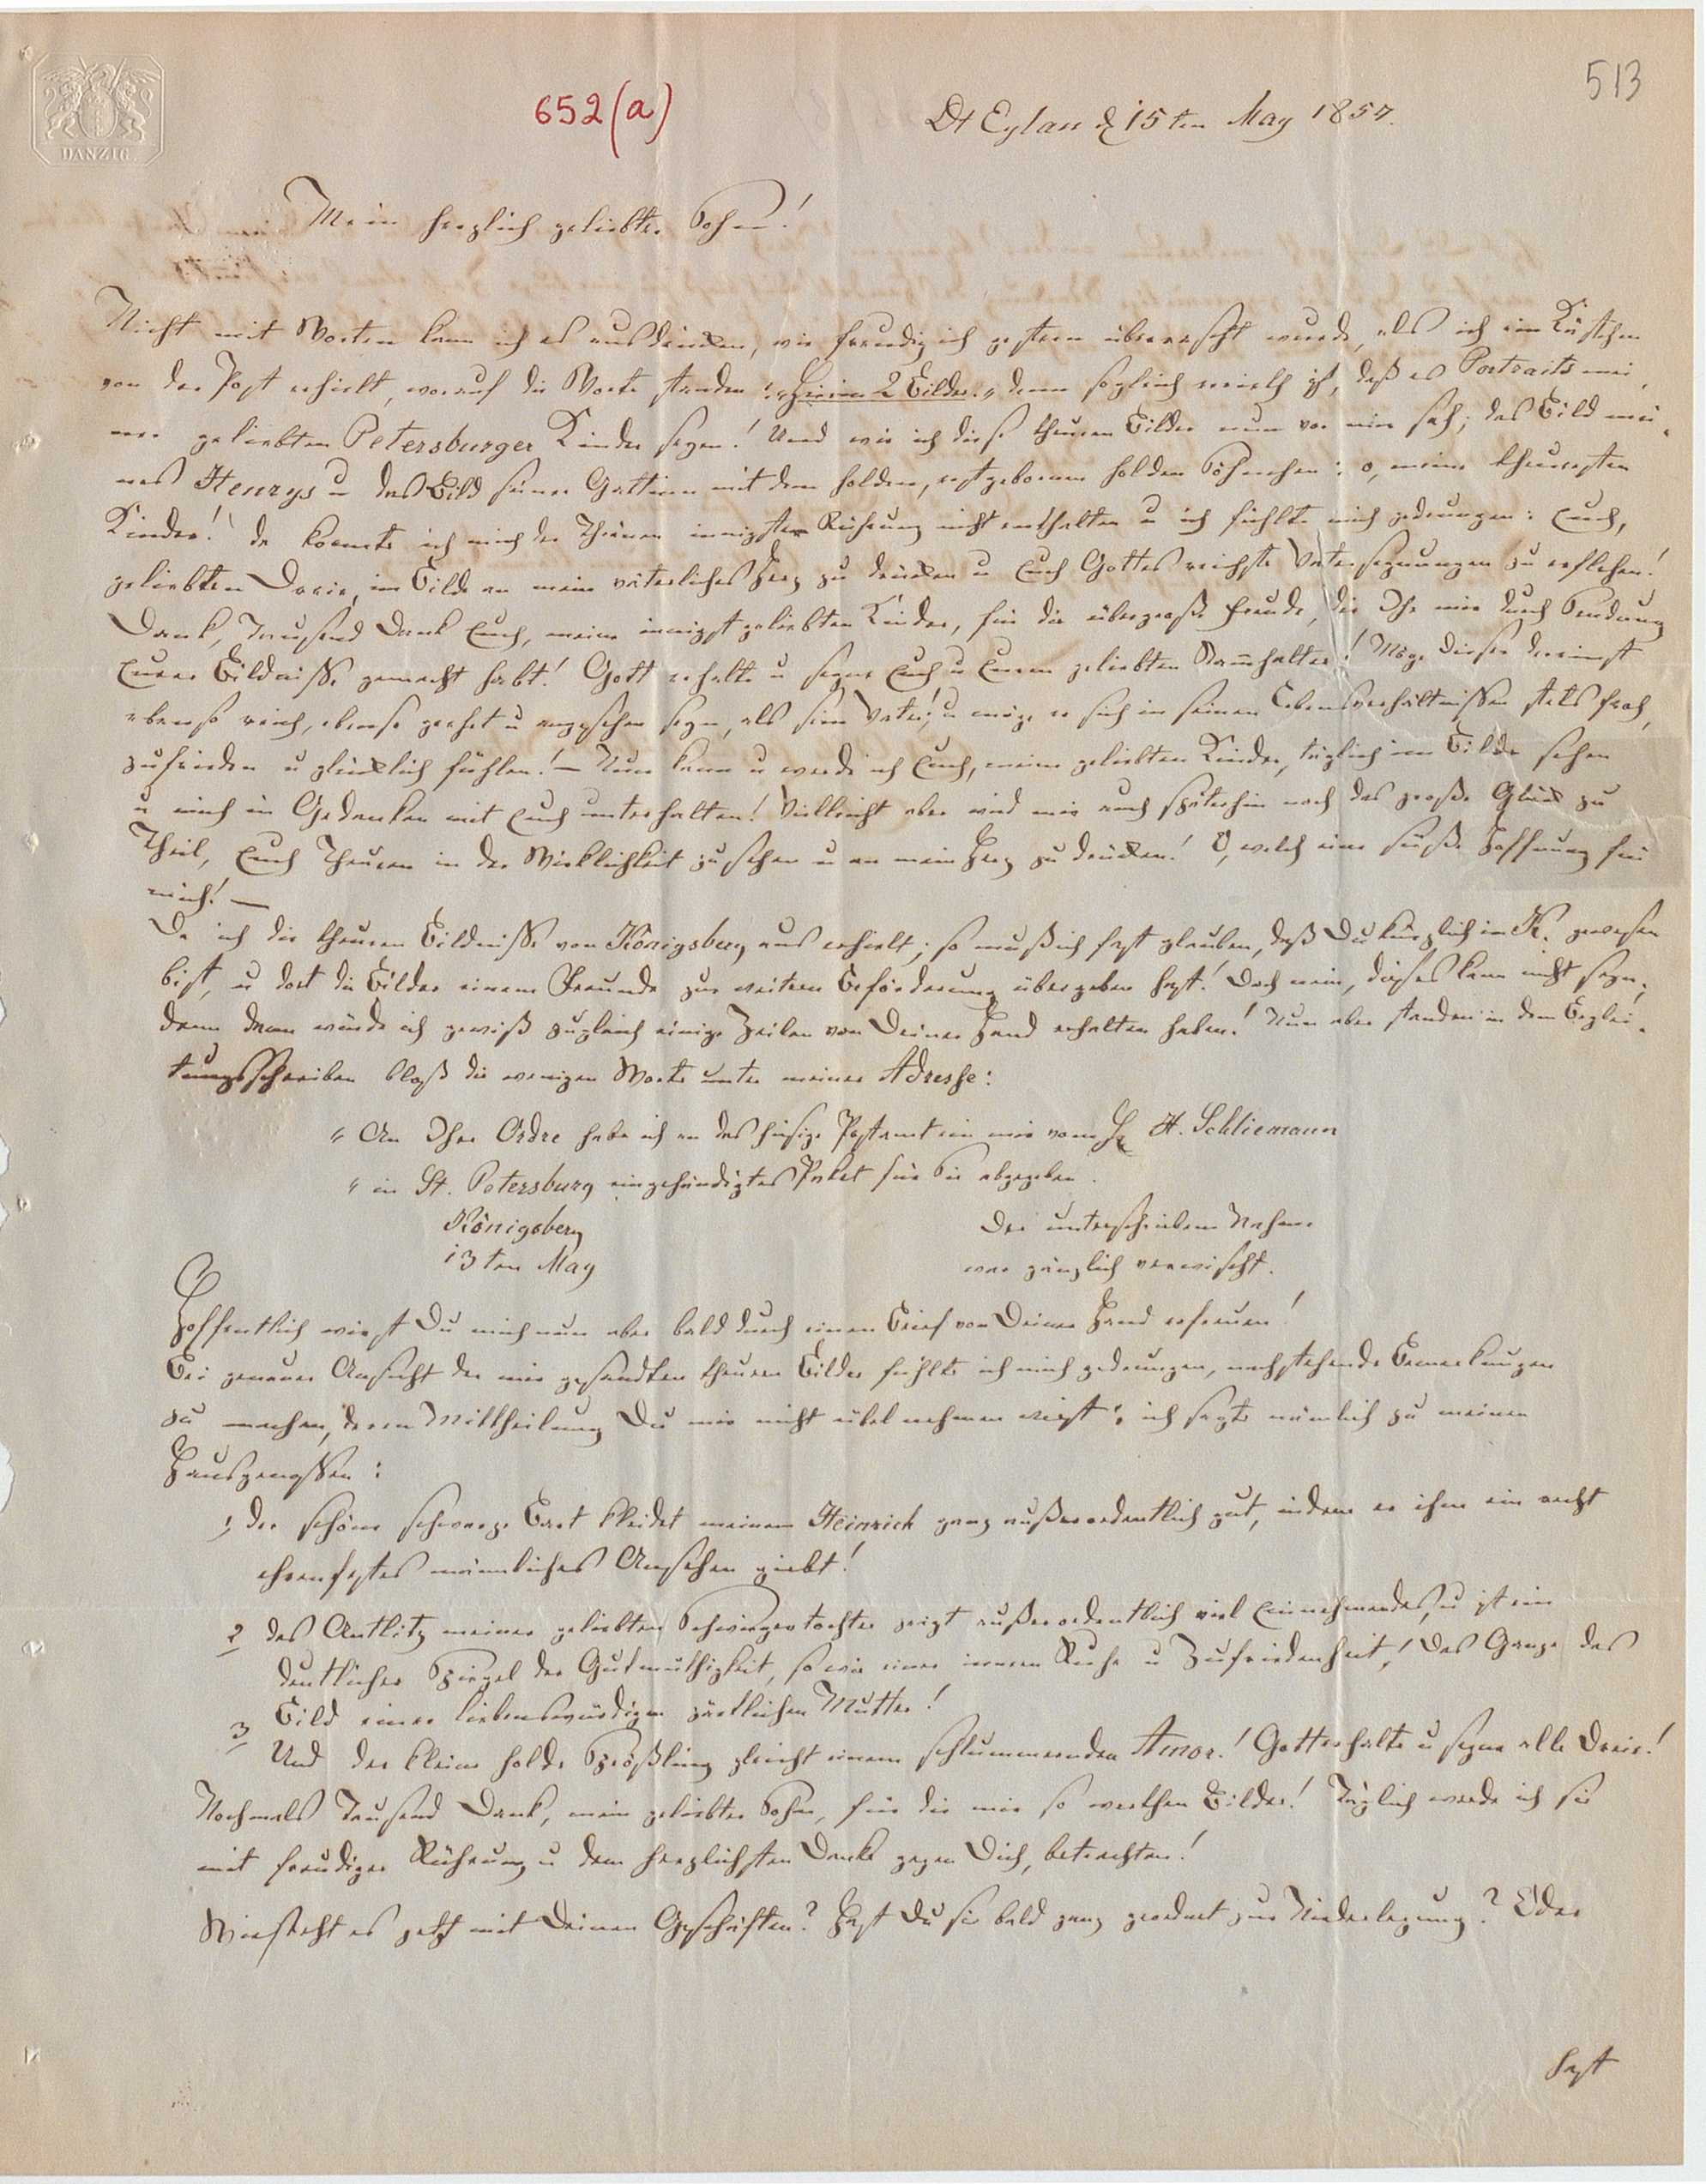 513
652(a)
DANZIG.
Dt Eylau d 15ten May 1857.
Mein herzlich geliebter Sohn!
Nicht mit Worten kann ich es ausdrücken, wie freudig ich gestern überrascht wurde, als ich ein Kästchen
von der Post erhielt, worauf die Worte standen: „Hierin 2 Bilder.“ denn sogleich errieth ich, daß es Portraits mei,
ner geliebten Petersburger Kinder seyen! Und wie ich diese theuren Bilder nun vor mir sah; das Bild mei,
nes Henrys u das Bild seiner Gattinn mit dem holden, erstgebornen holden Söhnchen: o, meine theuersten
Kinder! da konnte ich mich der Thränen innigster Rührung nicht enthalten u ich fühlte mich gedrungen: Euch,
geliebten Dreie, im Bilde an mein väterliches Herz zu drücken u Euch Gottes reichste Vatersegnungen zu erflehen!
Dank, Tausend Dank Euch, meine innigst geliebten Kinder, für die übergroße Freude, die Ihr mir durch Sendung
Eurer Bildnisse gemacht habt! Gott erhalte u segne Euch u Euren geliebten Stammhalter! Möge dieser dereinst
ebenso reich, ebenso geehrt u angesehen seyn, als sein Vater; u möge er sich in seinen Lebensverhältnissen stets froh,
zufrieden u glücklich fühlen! — Nun kann u werde ich Euch, meine geliebten Kinder, täglich im Bilde sehen
u mich in Gedanken mit Euch unterhalten! Vielleicht aber wird mir auch späterhin noch das große Glück zu
Theil, Euch Theuren in der Wirklichkeit zu sehen u an mein Herz zu drücken! O, welch eine süße Hoffnung für
mich! —
Da ich die theuren Bildnisse von Königsberg aus erhielt; so muß ich fast glauben, daß Du kürzlich in K. gewesen
bist, u dort die Bilder einem Freunde zur weitern Beförderung übergeben hast! Doch nein, dieses kann nicht seyn,
denn dann würde ich gewiß zugleich einige Zeilen von Deiner Hand erhalten haben! Nun aber standen in dem Beglei,
tungsschreiben bloß die wenigen Worte unter meiner Adresse:
„ An Ihre Ordre habe ich an das hiesige Postamt ein mir vom H H. Schliemann
„ in St. Petersburg eingehändigtes Paket für Sie abgegeben.
Königsberg
13ten May
Der unterschriebene Nahme
war gänzlich verwischt.
Hoffentlich wirst Du mich nun aber bald durch einen Brief von Deiner Hand erfreuen!
Bei genauer Ansicht der mir gesandten theuren Bilder fühlte ich mich gedrungen, nachstehende Bemerkungen
zu machen, deren Mittheilung Du mir nicht übel nehmen wirst; ich sagte nämlich zu meinen
Hausgenossen:
1, der schöne schwarze Bart kleidet meinem Heinrich ganz außerordentlich gut, indem er ihm ein recht
ehrenfestes männliches Ansehen giebt!
2 das Antlitz meiner geliebten Schwiegertochter zeigt außerordentlich viel Einnehmendes, u ist ein
deutlicher Spiegel der Gutmüthigkeit, so wie einer innern Ruhe u Zufriedenheit! Das Ganze das
Bild einer liebenswürdigen zärtlichen Mutter!
3 Und der kleine holde Sprößling gleicht einem schlummernden Amor! Gott erhalte u segne alle Dreie!
Nochmals Tausend Dank, mein geliebter Sohn, für die mir so werthen Bilder! Täglich werde ich sie
mit freudiger Rührung u dem herzlichsten Danke gegen Dich, betrachten!
Wie steht es jetzt mit Deinen Geschäften? Hast Du sie bald ganz geordnet zur Niederlegung? Oder
hast